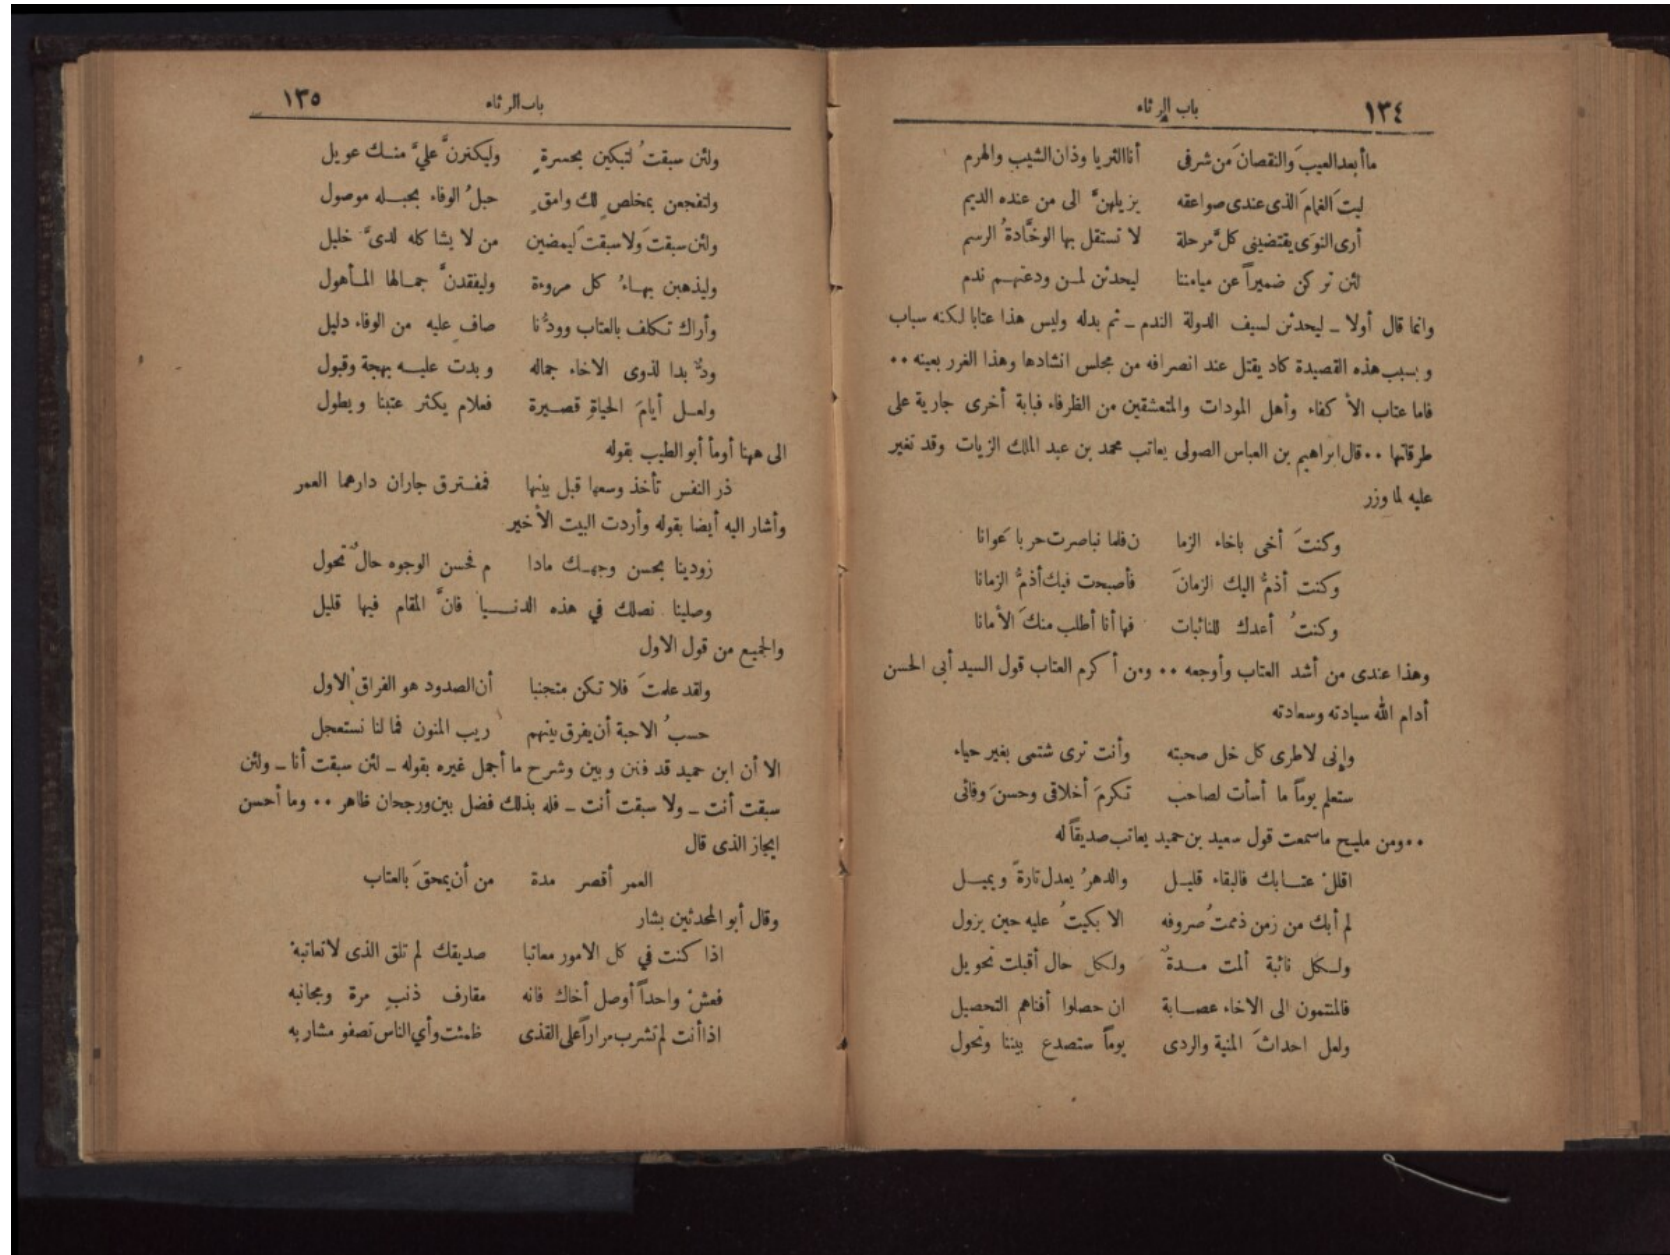 ١٣٤ باب الرثاء
ماأبعدالعيبَ والنقصانَ من شرفى أناالثريا وذان الشيب والهرم
ليتَ الغمامَ الذى عندى صواعقه يزيلهنَّ الى من عنده الديم
أرى النوَى يقتضينى كلَّ مرحلة لا تستقل بها الوخَّادةُ الرسم
لئن تركن ضميراً عن ميامننا ليحدثن لمـن ودعتهـم ندم
وانما قال أولا ــ ليحدثن لسيف الدولة الندم ــ ثم بدله وليس هذا عتابا لكنه سباب
وبسبب هذه القصيدة كاد يقتل عند انصرافه من مجلس انشادها وهذا الغرر بعينه ٠٠
فاما عتاب الأكفاء وأهل المودات والمتعشقين من الظرفاء فبابة أخرى جارية على
طرقاتها ٠٠ قال ابراهيم بن العباس الصولى يعاتب محمد بن عبد الملك الزيات وقد تغير
عليه لما وزر
وكنتَ أخى باخاء الزما ن فلما نباصرت حربا عَوانا
وكنت أذمُّ اليك الزمانَ فأصبحت فيك أذمُّ الزمانا
وكنتُ أعدك للنائبات فها أنا أطلب منكَ الأمانا
وهذا عندى من أشد العتاب وأوجعه ٠٠ ومن أكرم العتاب قول السيد أبى الحسن
أدام الله سيادته وسعادته
وإنى لاطرى كل خل صحبته وأنت ترى شتمى بغير حياء
ستعلم يوماً ما أسأت لصاحب تكرمَ أخلاقى وحسنَ وفائى
٠٠ ومن مليح ماسمعت قول سعيد بن حميد يعاتب صديقاً له
اقللْ عتـابك فالبقاء قليـل والدهرُ يعدل تارةً ويميـل
لم أبك من زمن ذممتُ صروفه الا بكيتُ عليه حين يزول
ولـكل نائبة ألمت مـدةٌ ولكل حال أقبلت تحويل
فالمنتمون الى الاخاء عصـابة ان حصلوا أفناهم التحصيل
ولعل احداثَ المنية والردى يوماً ستصدع بيننا وتحول
باب الرثاء ١٣٥
ولئن سبقتُ لتبكين بحسرةٍ وليكثرنَّ عليَّ منـك عويل
ولتفجعن بمخلصٍ لك وامقٍ حبلُ الوفاء بحبـله موصول
ولئن سبقتَ ولا سبقتَ ليمضين من لا يشاكله لدىَّ خليل
وليذهبن بهـاءُ كل مروءة وليفقدنَّ جمـالها المـأهول
وأراك تكلف بالعتاب وودُّنا صافٍ عليه من الوفاء دليل
ودٌّ بدا لذوى الاخاء جماله وبدت عليـه بهجة وقبول
ولعـل أيامَ الحياةِ قصـيرة فعلام يكثر عتبنا ويطول
الى ههنا أومأ أبو الطيب بقوله
ذر النفس تأخذ وسعها قبل بينها فمفـترق جاران دارهما العمر
وأشار اليه أيضا بقوله وأردت البيت الأخير
زودينا بحسن وجهـك مادا م فحسن الوجوه حالٌ تحول
وصلينا نصلك في هذه الدنـيا فانَّ المقام فيها قليل
والجميع من قول الاول
ولقد علمتَ فلا تكن متجنبا أن الصدود هو الفراق الاول
حسبُ الاحبة أن يفرق بينهم ريب المنون فما لنا نستعجل
الا أن ابن حميد قد فنن وبين وشرح ما أجمل غيره بقوله ــ لئن سبقت أنا ــ ولئن
سبقت أنت ــ ولا سبقت أنت ــ فله بذلك فضل بين ورجحان ظاهر ٠٠ وما أحسن
ايجاز الذى قال
العمر أقصر مدة من أن يمحقَ بالعتاب
وقال أبو المحدثين بشار
اذا كنت في كل الامور معاتبا صديقك لم تلق الذى لاتعاتبه
فعشْ واحداً أوصل أخاك فانه مقارف ذنبٍ مرة ومجانبه
اذاأنت لم تشرب مراراً على القذى ظمئت وأي الناس تصفو مشاربه